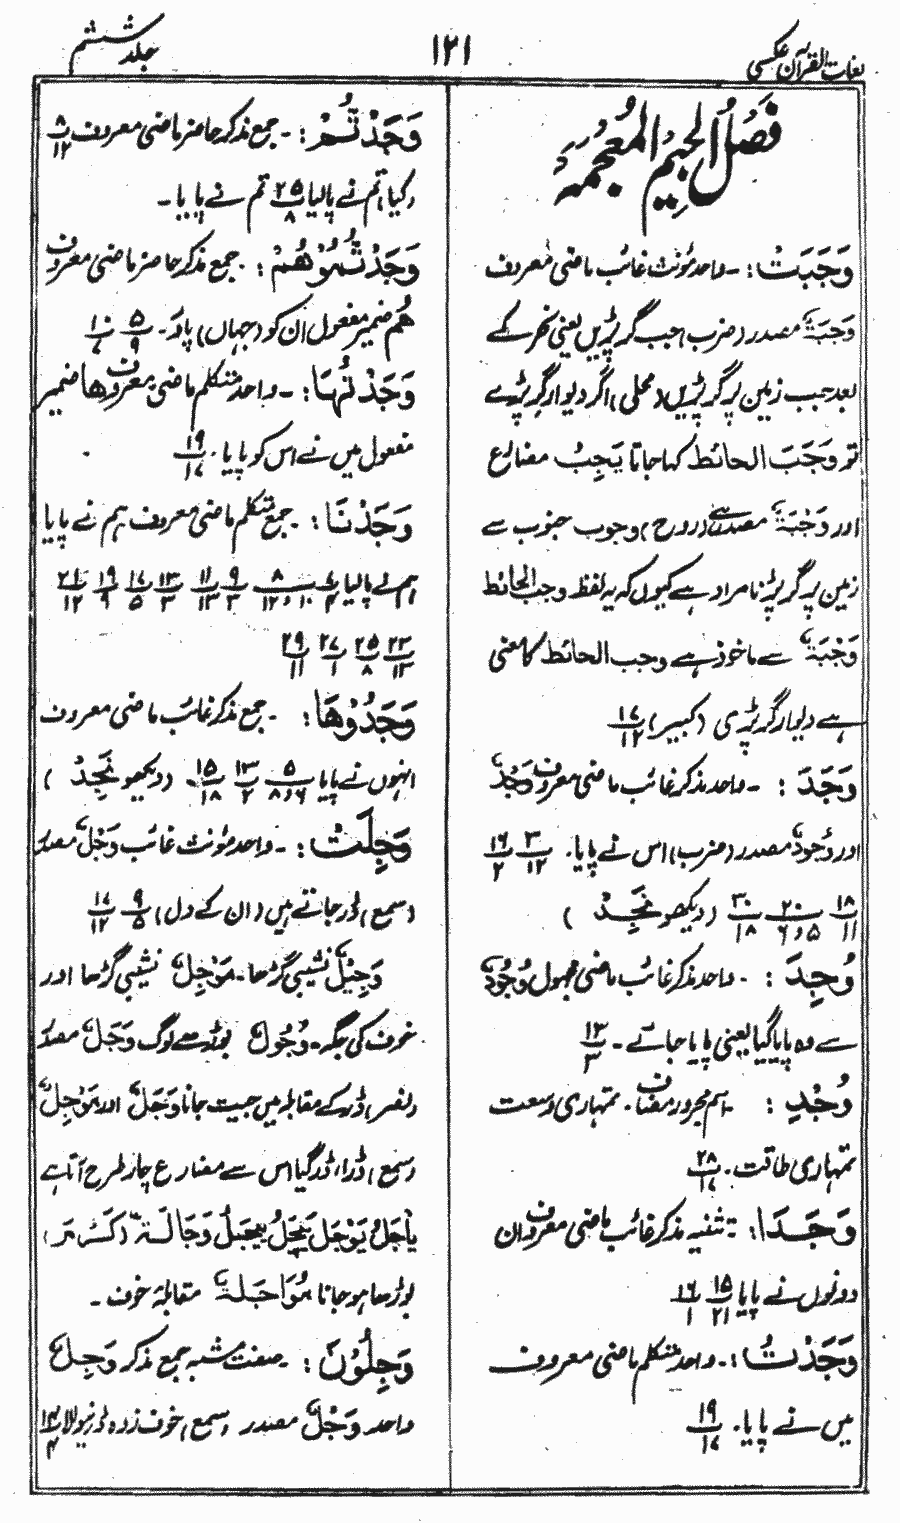 لغات القرآن عکسی
۱۲۱
جلد ششم
فَصْلُ الْجِيْمِ الْمُعْجَمَه
وَجَبَتْ : ۔ واحد مؤنث غائب ماضی معروف
وَجْبَةٌ مصدر (ضرب) جب گر پڑیں یعنی نحر کے
بعد جب زمین پر گر پڑیں (محلی) اگر دیوار گر پڑے
تو وَجَبَ الحائط کہا جاتا یَجِبُ مضارع
اور وَجْبَةٌ مصدر ہے (روح) وجوب جنوب سے
زمین پر گر پڑنا مراد ہے کیوں کہ یہ لفظ وجب الحائط
وَجْبَةٌ سے ماخوذ ہے وجب الحائط کا معنی
ہے دیوار گر پڑی (کبیر) ۱۷/۱۲
وَجَدَ : ۔ واحد مذکر غائب ماضی معروف وَجْدٌ
اور وُجُوْدٌ مصدر (ضرب) اس نے پایا۔ ۳/۱۲ ۱۶/۲
۱۸/۱۱ ۲۰/۵و۶ ۳۰/۱۸ (دیکھو نَجِدُ)
وُجِدَ : ۔ واحد مذکر غائب ماضی مجہول وُجُوْدٌ
سے وہ پایا گیا یعنی پایا جائے ۔ ۱۳/۳
وُجْدِ : ۔ اسم مجرور مضاف۔ تمہاری وسعت
تمہاری طاقت ۔ ۲۸/۱۷
وَجَدَا : ۔ تثنیہ مذکر غائب ماضی معروف ان
دونوں نے پایا ۱۵/۲۱ ۱۶/۱
وَجَدْتُ : ۔ واحد متکلم ماضی معروف
میں نے پایا ۔ ۱۹/۱۷
وَجَدْتُّمْ : ۔ جمع مذکر حاضر ماضی معروف ۸/۱۲
(کیا) تم نے پالیا ۲۵/۸ تم نے پایا ۔
وَجَدْتُّمُوْهُمْ : ۔ جمع مذکر حاضر ماضی معروف
هُم ضمیر مفعول ان کو (جہاں) پاؤ ۔ ۵/۹ ۱۰/۷
وَجَدْتُّهَا : ۔ واحد متکلم ماضی معروف ها ضمیر
مفعول میں نے اس کو پایا ۔ ۱۹/۱۷
وَجَدْنَا : ۔ جمع متکلم ماضی معروف ہم نے پایا
ہم نے پالیا ۷/۴ ۸/۱۰و۱۲ ۹/۳ ۱۱/۱۳ ۱۳/۳ ۱۷/۵ ۱۹/۹ ۲۱/۱۲
۲۳/۱۳ ۲۵/۸ ۲۷/۱ ۲۹/۱۱
وَجَدُوْهَا : ۔ جمع مذکر غائب ماضی معروف
انہوں نے پایا ۵/۶و۸ ۱۳/۲ ۱۵/۱۸ ۔ (دیکھو نَجِدُ)
وَجِلَتْ : ۔ واحد مؤنث غائب وَجْلٌ مصدر
(سمع) ڈر جاتے ہیں (ان کے دل) ۹/۵ ۱۷/۱۲
وَجِيْلٌ نشیبی گڑھا۔ مَوْجِلٌ نشیبی گڑھا اور
خوف کی جگہ۔ وُجُوْلٌ بوڑھے لوگ وَجَلٌ مصدر
(نصر) ڈر کے مقابلہ میں جیت جانا وَجَلٌ اور مَوْجِلٌ
(سمع) ڈرا، ڈر گیا اس سے مضارع چار طرح آتا ہے
یَاْجَلُ یَوْجَلُ یَیْجَلُ یِیْجَلُ وَجَالَةٌ (کَرُمَ)
بوڑھا ہو جانا مُوَاجَلَةٌ مقابلۂ خوف ۔
وَجِلُوْنَ : ۔ صفت مشبہ جمع مذکر وَجِلٌ
واحد وَجْلٌ مصدر (سمع) خوف زدہ ڈرنیوالا ۱۴/۴